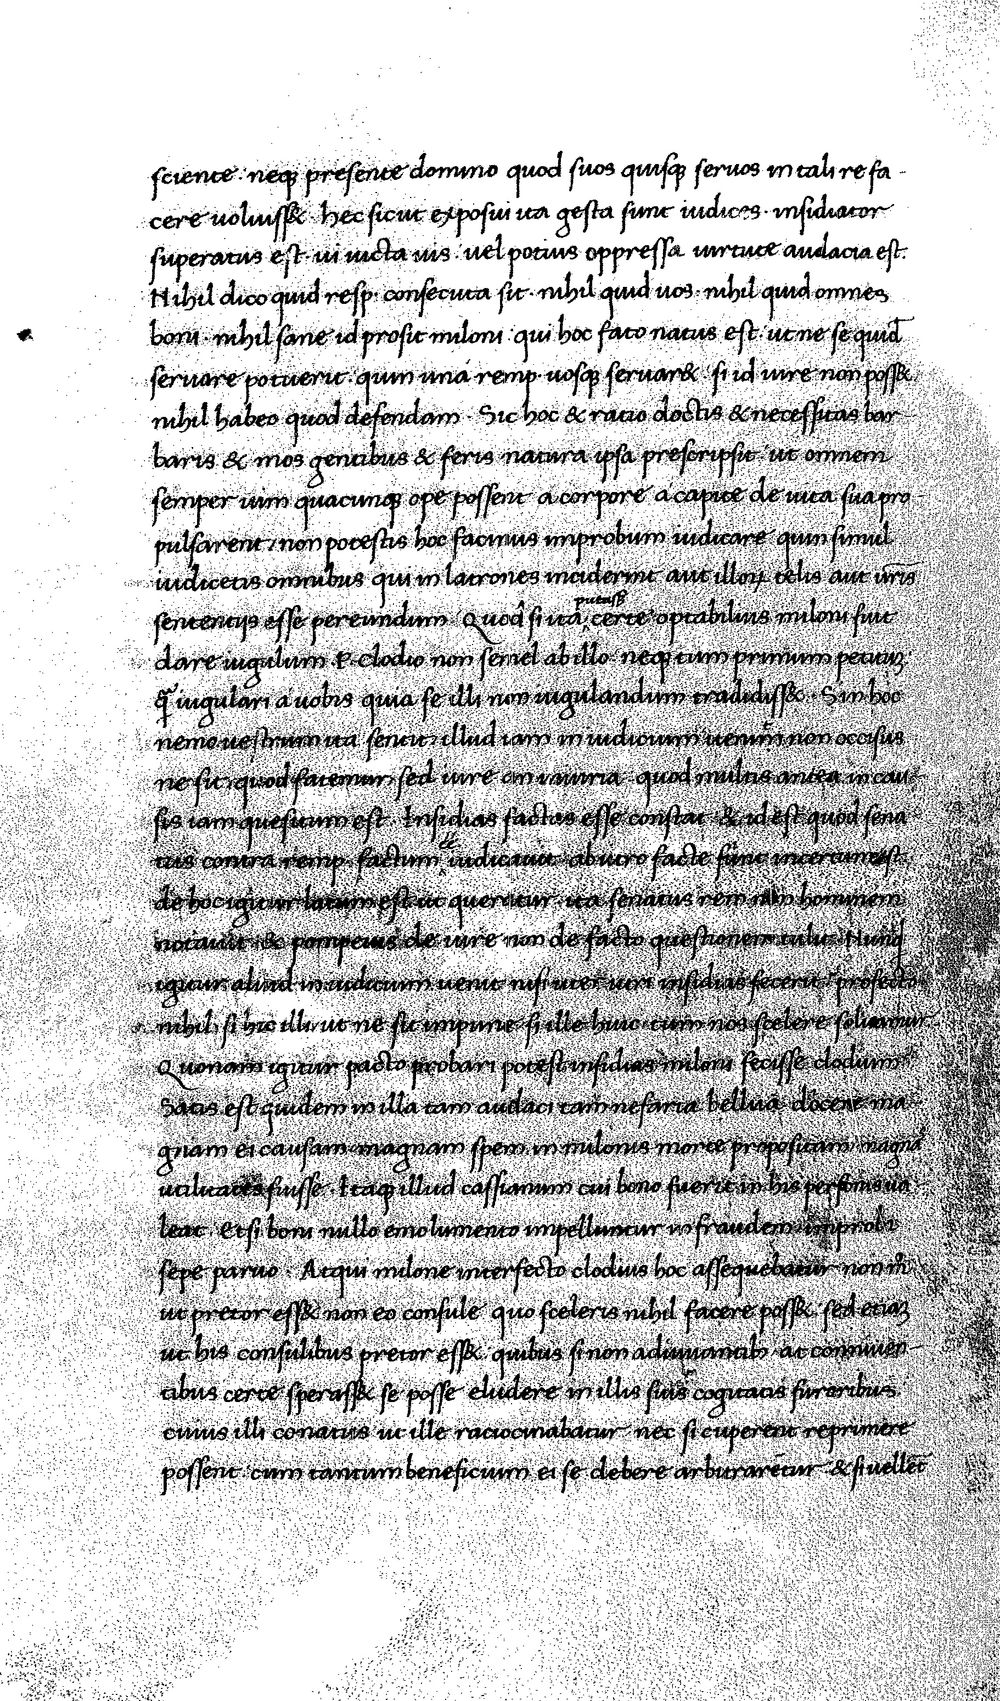 sciente. neq; presente domino quod suos quisq; seruos in tali re fa-
cere uoluiss&. hec sicut exposui ita gesta sunt iudices. insidiator
superatus est. ui uicta uis. uel potius oppressa uirtute audacia est.
Nihil dico quid resp. consecuta sit. nihil quid uos. nihil quid omnes
boni. nihil sane id prosit miloni. qui hoc fato natus est. ut ne se quid̄
seruare potuerit. quin una remp. uosq; seruar&. si id iure non poss&.
nihil habeo quod defendam. Sic hoc & ratio doctis & necessitas bar-
baris & mos gentibus & feris natura ipsa prescripsit. ut omnem
semper uim quacunq; ope possent a corpore a capite de uita sua pro-
pulsarent. non potestis hoc facinus improbum iudicare quin simul
iudicetis omnibus qui in latrones inciderint aut illoꝝ telis aut ur̄is
sententijs esse pereundum. Quod si ita putass& certe optabilius miloni fuit
dare iugulum P. Clodio non semel ab illo. neq; tum primum petituꝫ
q̄ iugulari a uobis quia se illi non iugulandum tradidiss&. Sin hoc
nemo uestrum ita sentit. illud iam in iudicium uenit non occisus
ne sit. quod fatemur sed iure an iniuria. quod multis antea in cau-
sis iam quesitum est. Insidias factas esse constat. & id est quod sena-
tus contra remp. factum e͞e iudicauit. ab utro facte sunt incertum est.
de hoc igitur latum est ut quereretur. ita senatus rem non hominem
notauit. & pompeius de iure non de facto questionem tulit. Nunq̄
igitur aliud in iudicium uenit nisi uter utri insidias fecerit. profecto
nihil. si hic illi. ut ne sit impune. si ille huic. tum nos scelere soluamur.
Quonam igitur pacto probari potest insidias miloni fecisse clodium
Satis est quidem in illa tam audaci tam nefaria bellua docere ma-
gnam ei causam magnam spem in milonis morte propositam. magnā
utilitates fuisse. Itaq; illud cassianum cui bono fuerit in his personis ua-
leat. Etsi boni nullo emolumento impelluntur in fraudem. improbi
sepe paruo. Atqui milone interfecto clodius hoc assequebatur non m̊
ut pretor ess& non eo consule quo sceleris nihil facere poss&. sed etiaꝫ
ut his consulibus pretor ess&. quibus si non adiuuantib; at conniuen-
tibus certe sperass& se posse eludere in illis suis cogitatis furoribus.
cuius illi conatus ut ille ratiocinabatur nec si cuperent reprimere
possent. cum tantum beneficium ei se debere arbitraretur. & si uellēt